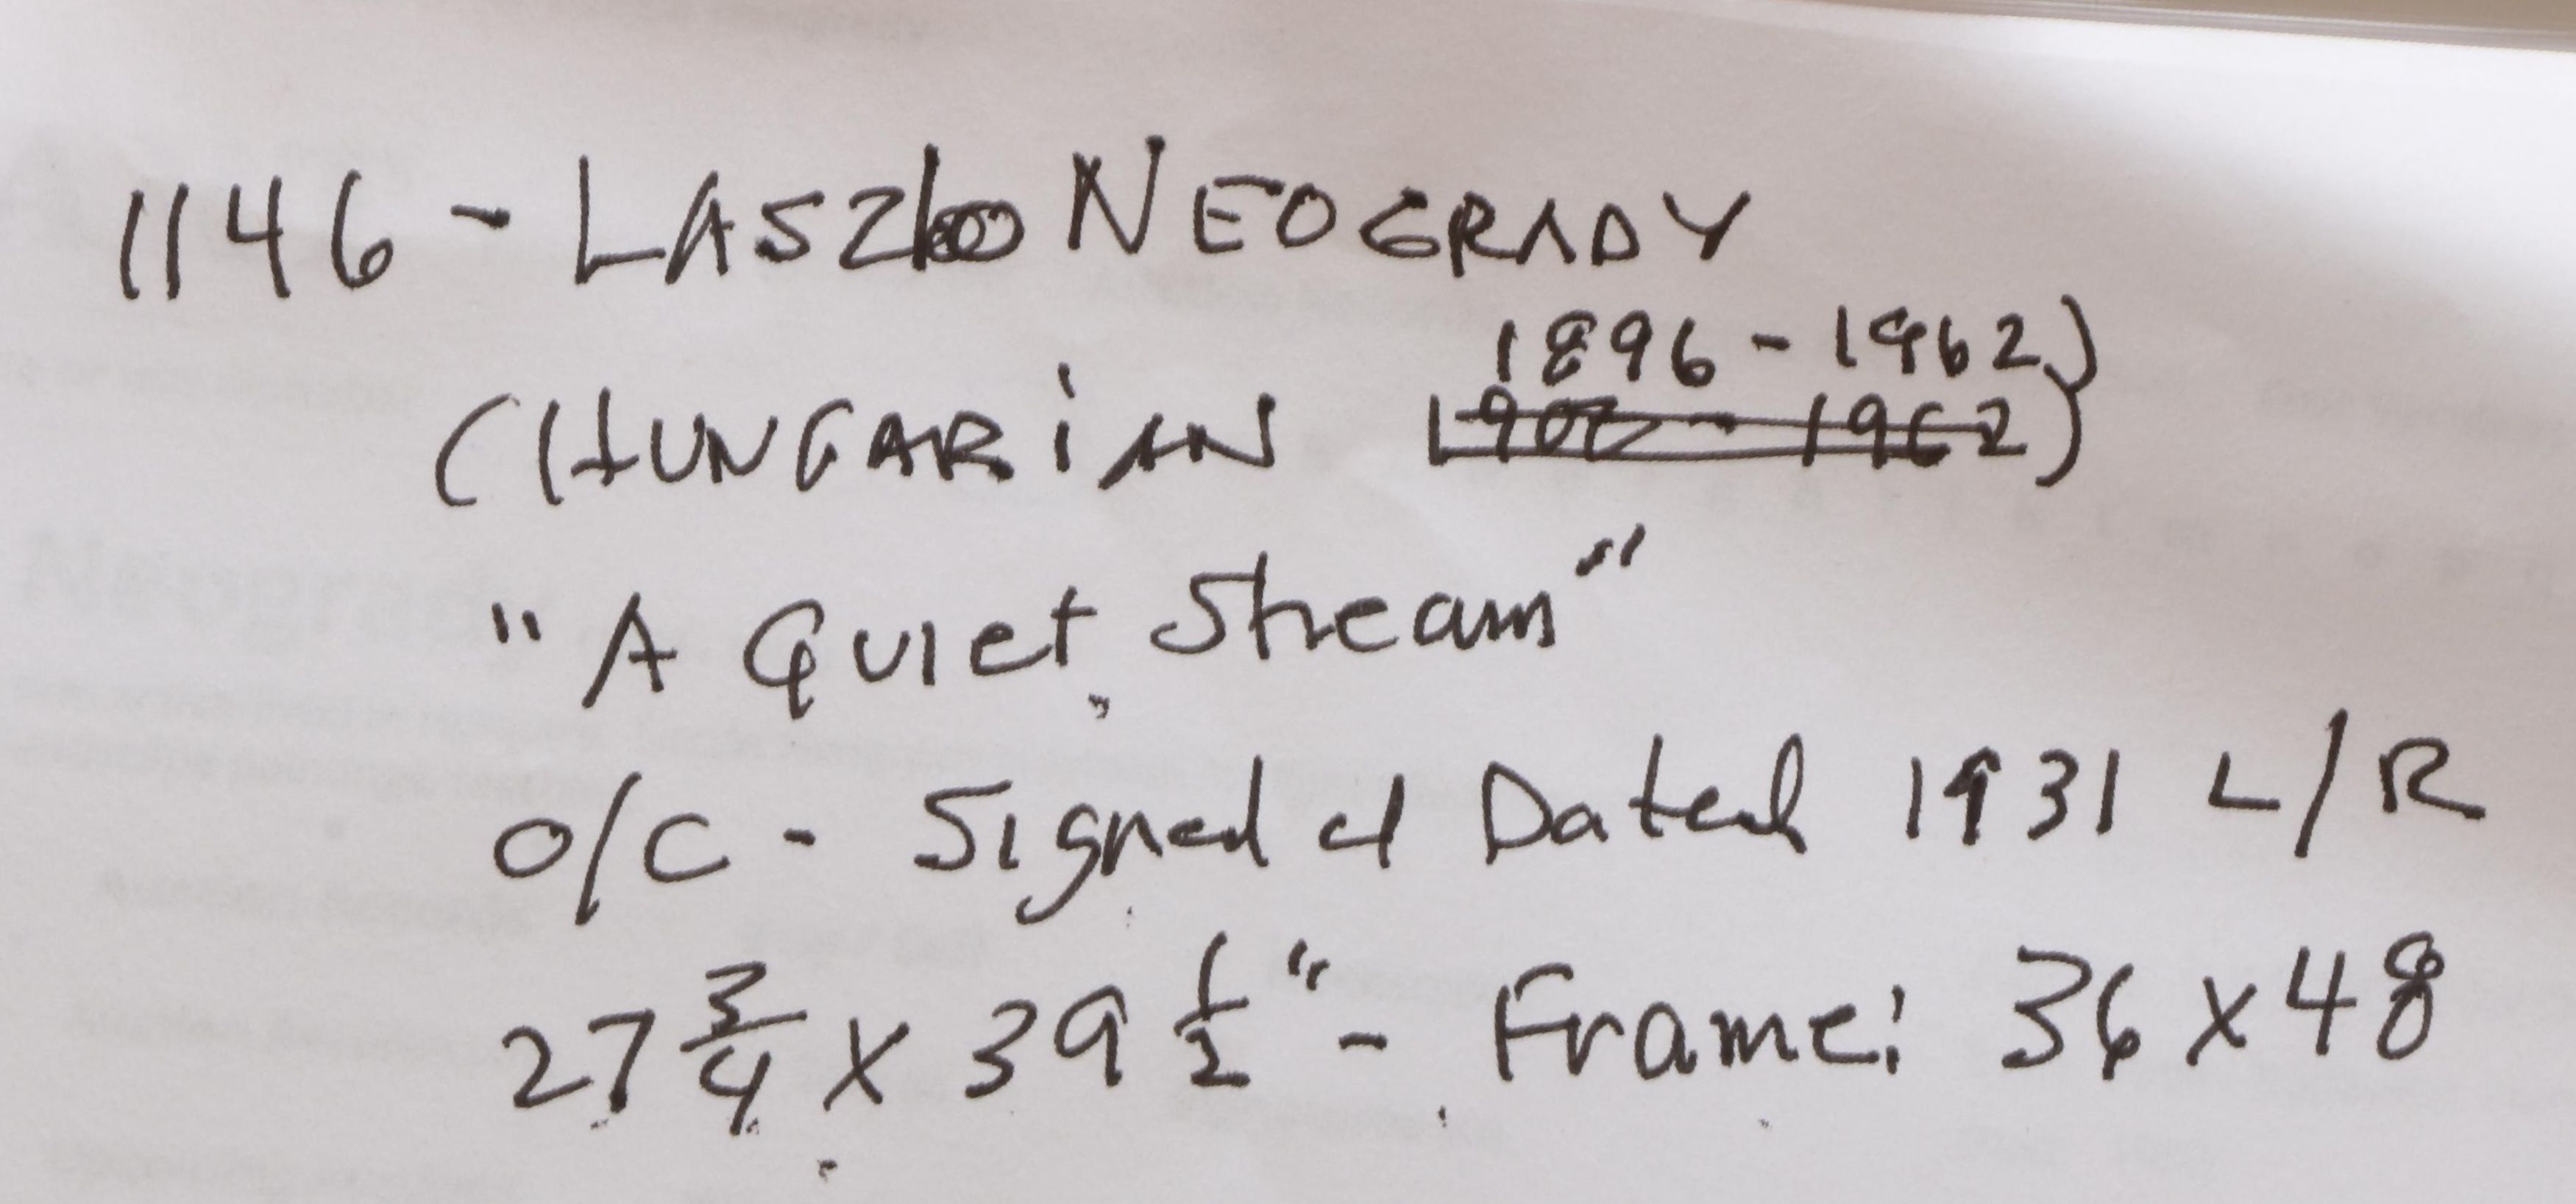 1146 - LASZLO NEOGRADY
1896 - 1962)
(HUNGARIAN 1900 - 1962)
"A Quiet Stream"
O/C - Signed & Dated 1931 L/R
27 3/4 x 39 1/2" - Frame: 36 x 48
Neogrady
Auction Records